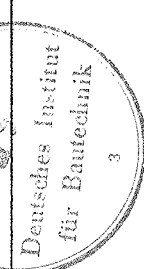 Deutsches Institut
für Bautechnik
3